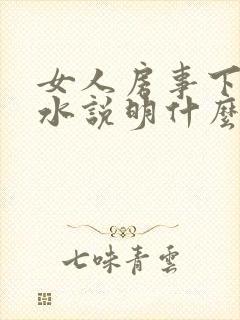 女人房事下
水說明什麼
七味青雲